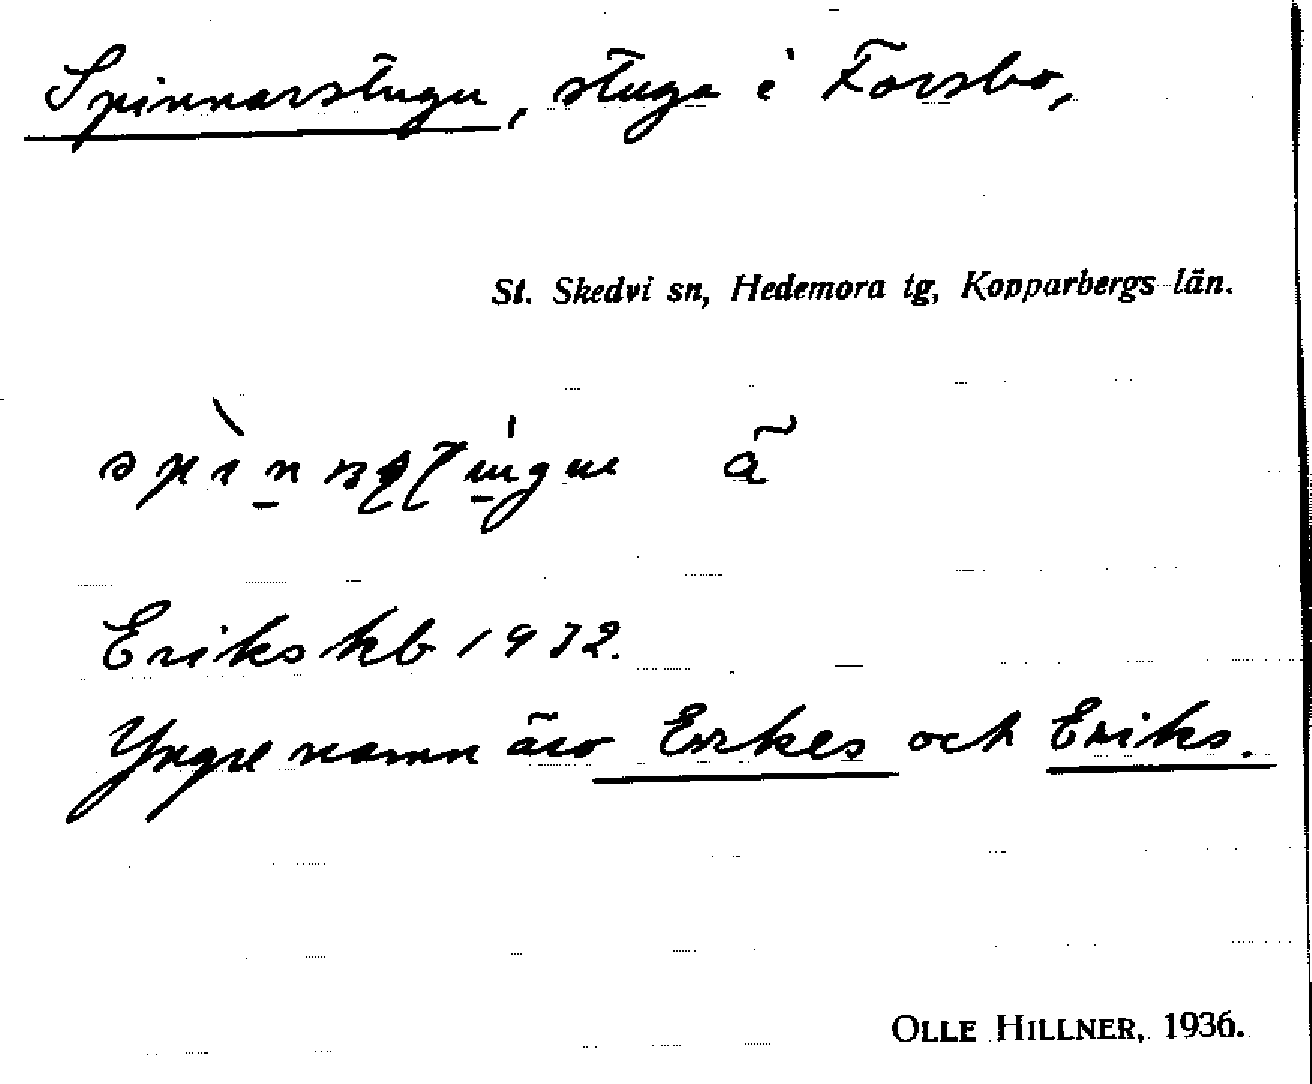 Spinnarstugu, stuga i Forsbo,
St. Skedvi sn, Hedemora tg, Kopparbergs län.
ã
Eriks kb 1932.
Yngre namn äro Erkes och Eriks.
OLLE HILLNER, 1936.